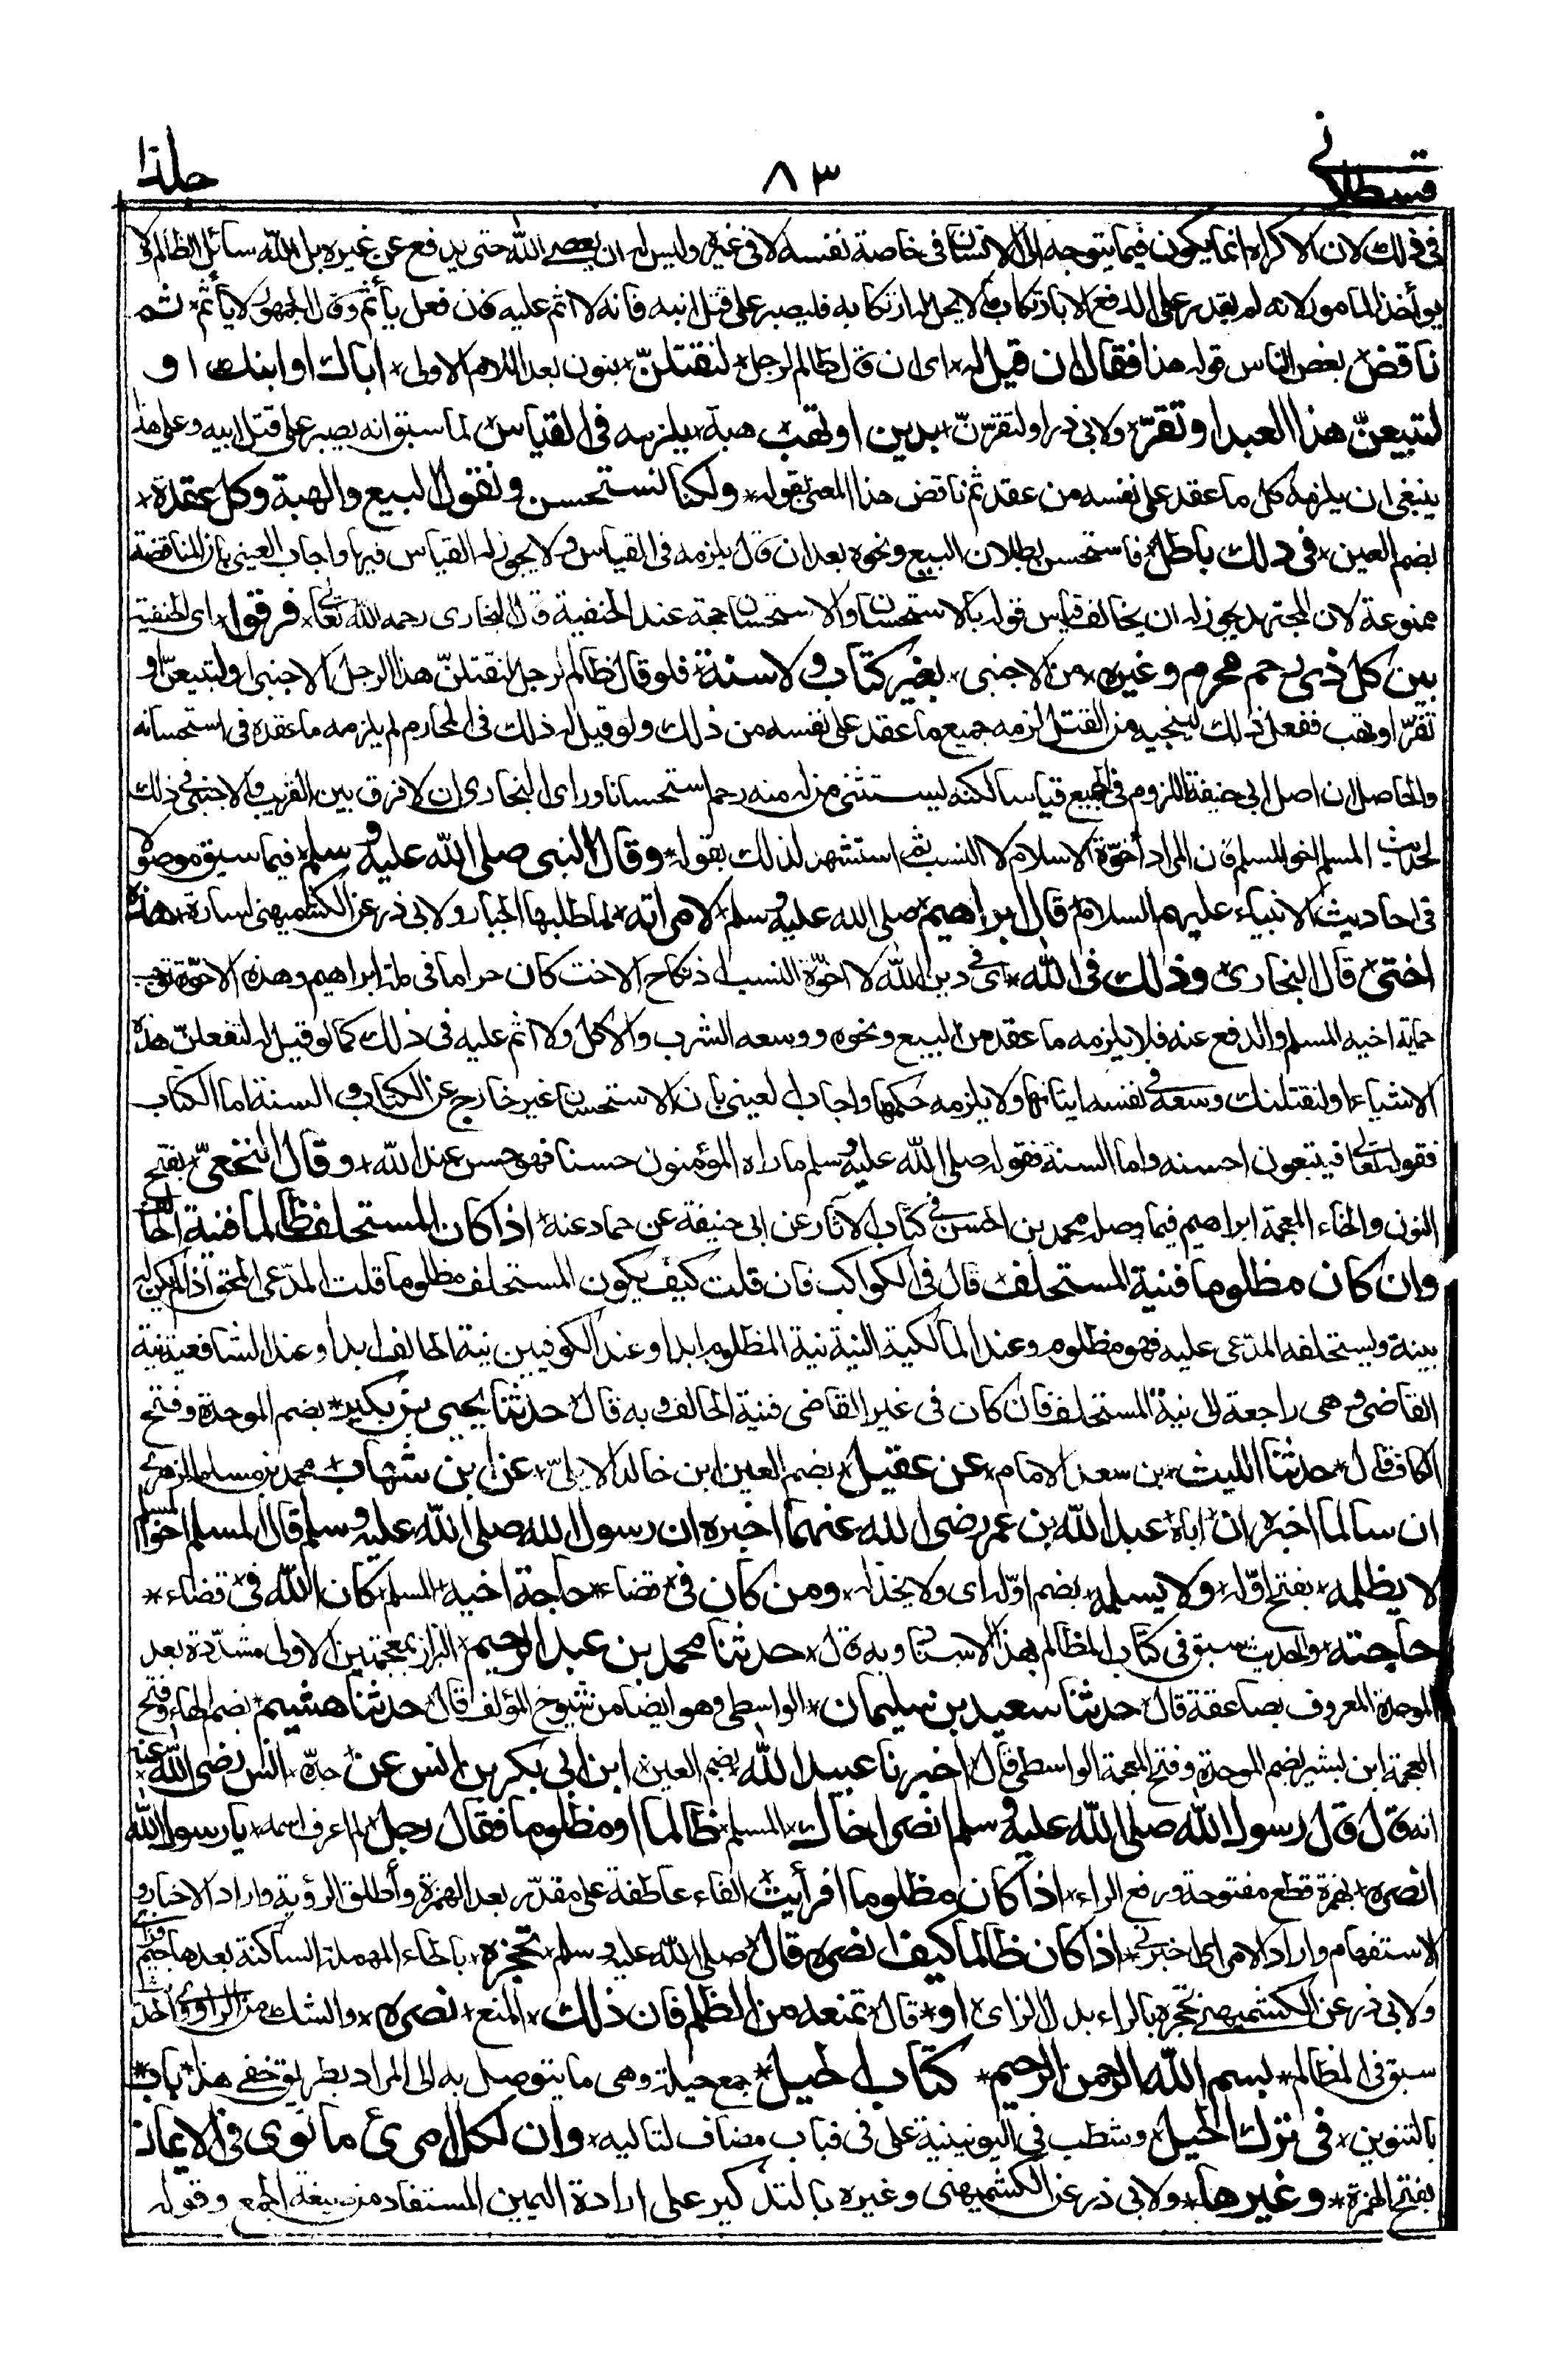 قسطلاني ٨٣ جلد١٠
في ذلك لان الاكراه انما يكون فيما يتوجه الى الانسان في خاصة نفسه لا في غيره وليس له ان يعصي الله حتى يدفع عن غيره بل الله سائل الظالم ولا
يؤاخذ المأمور لانه لم يقدر على الدفع الا بارتكاب ما لا يحل له ارتكابه فليصبر على قتل ابنه فانه لا اثم عليه فان فعل يأثم وقال الجمهور لا يأثم * ثم
ناقض * بعض الناس قوله هذا فقال ان قيل له * اى ان قال ظالم لرجل * لنقتلنّ * بنون بعد اللام الاولى * اباك او ابنك او
لتبيعنّ هذا العبد او تقرّ * ولابي ذر او لتقرّنّ * بدين او تهب * هبة * يلزمه في القياس * لما سبق انه يصبر على قتل ابيه وعلى هذا
ينبغي ان يلزمه كل ما عقد على نفسه من عقد ثم ناقض هذا المعنى بقوله * ولكنا نستحسن ونقول البيع والهبة وكل عقدة *
بضم العين * في ذلك باطل * فاستحسن بطلان البيع ونحوه بعد ان قال يلزمه في القياس ولا يجوز له القياس فيها واجاب العيني بان المناقضة
ممنوعة لان المجتهد يجوز له ان يخالف قياس قوله بالاستحسان والاستحسان حجة عند الحنفية قال البخارى رحمه الله تعالى * فرقوا * اى الحنفية
بين كل ذى رحم محرم وغيره * من الاجنبي * بغير كتاب ولا سنة * فلو قال ظالم لرجل لنقتلنّ هذا الرجل الاجنبي او لتبيعنّ او
تقرّ او تهب ففعل ذلك لينجيه من القتل لزمه جميع ما عقد على نفسه من ذلك ولو قيل له ذلك في المحارم لم يلزمه ما عقده في استحسانه
والحاصل ان اصل ابي حنيفة اللزوم في الجميع قياسا لكنه يستثنى من له منه رحم استحسانا وراى البخارى ان لا فرق بين القريب والاجنبي في ذلك
لحديث المسلم اخو المسلم فان المراد اخوّة الاسلام لا النسب ثم استشهد لذلك بقوله * وقال النبي صلى الله عليه وسلم * فيما سبق موصولا
في احاديث الانبياء عليهم السلام * قال ابراهيم * صلى الله عليه وسلم * لامرأته * لما طلبها الجبار ولابي ذر عن الكشميهني لسارة * هذه
اختي * قال البخارى * وذلك في الله * اى في دين الله لا اخوّة النسب اذ نكاح الاخت كان حراما في ملة ابراهيم وهذه الاخوّة توجب
حماية اخيه المسلم والدفع عنه فلا يلزمه ما عقد من البيع ونحوه ووسعه الشرب والاكل ولا اثم عليه في ذلك كما لو قيل له لتفعلنّ هذه
الاشياء او لنقتلنك وسعه في نفسه اتيانها ولا يلزمه حكمها واجاب العيني بان الاستحسان غير خارج عن الكتاب والسنة اما الكتاب
فقوله تعالى فيتبعون احسنه واما السنة فقوله صلى الله عليه وسلم ما راه المؤمنون حسنا فهو حسن عند الله * وقال النخعيّ * بفتح
النون والخاء المعجمة ابراهيم فيما وصله محمد بن الحسن في كتاب الآثار عن ابي حنيفة عن حماد عنه * اذا كان المستحلف ظالما فنية الحالف
وان كان مظلوما فنية المستحلف * قال في الكواكب فان قلت كيف يكون المستحلف مظلوما قلت المدّعى المحق اذا لم يكن له
بينة ويستحلفه المدّعى عليه فهو مظلوم وعند المالكية النية نية المظلوم ابدا وعند الكوفيين نية الحالف ابدا وعند الشافعية نية
القاضي وهي راجعة الى نية المستحلف فان كان في غير القاضي فنية الحالف وبه قال * حدثنا يحيى بن بكير * بضم الموحدة وفتح
الكاف قال * حدثنا الليث * بن سعد الامام * عن عقيل * بضم العين ابن خالد الايليّ * عن ابن شهاب * محمد بن مسلم الزهري
ان سالما اخبره ان * اباه * عبد الله بن عمر رضي الله عنهما اخبره ان رسول الله صلى الله عليه وسلم قال المسلم اخو المسلم
لا يظلمه * بفتح اوّله * ولا يسلمه * بضم اوّله اى ولا يخذله * ومن كان في * قضاء * حاجة اخيه * المسلم * كان الله في * قضاء *
حاجته * والحديث سبق في كتاب المظالم بهذا الاسناد وبه قال * حدثنا محمد بن عبد الرحيم * البزاز بمعجمتين الاولى مشدّدة بعد
الموحدة المعروف بصاعقة قال * حدثنا سعيد بن سليمان * الواسطي وهو ايضا من شيوخ المؤلف قال * حدثنا هشيم * بضم الهاء وفتح
المعجمة ابن بشير بضم الموحدة وفتح المعجمة الواسطي قال * اخبرنا عبيد الله * بضم العين * ابن ابي بكر بن انس عن * جدّه * انس رضي الله عنه
انه قال قال رسول الله صلى الله عليه وسلم انصر اخاك * المسلم * ظالما او مظلوما فقال رجل * لم اعرف اسمه * يا رسول الله
انصره * بهمزة قطع مفتوحة ورفع الراء * اذا كان مظلوما افرأيت * الفاء عاطفة على مقدّر بعد الهمزة وأطلق الرؤية واراد الاخبار و
الاستفهام واراد الامر اى اخبرني * اذا كان ظالما كيف انصره قال * صلى الله عليه وسلم * تحجزه * بالحاء المهملة الساكنة بعدها جيم فزاي
ولابي ذر عن الكشميهني تحجره بالراء بدل الزاى * او * قال * تمنعه من الظلم فان ذلك * المنع * نصره * والشك من الراوي والحديث
سبق في المظالم * بسم الله الرحمن الرحيم * كتاب الحيل * جمع حيلة وهي ما يتوصل به الى المراد بطريق خفي هذا * باب *
بالتنوين * في ترك الحيل * وشطب في اليونينية على في فباب مضاف لتاليه * وان لكل امرئ ما نوى في الايمان
بفتح الهمزة * وغيرها * ولابي ذر عن الكشميهني وغيره بالتذكير على ارادة اليمين المستفاد من صيغة الجمع وقوله